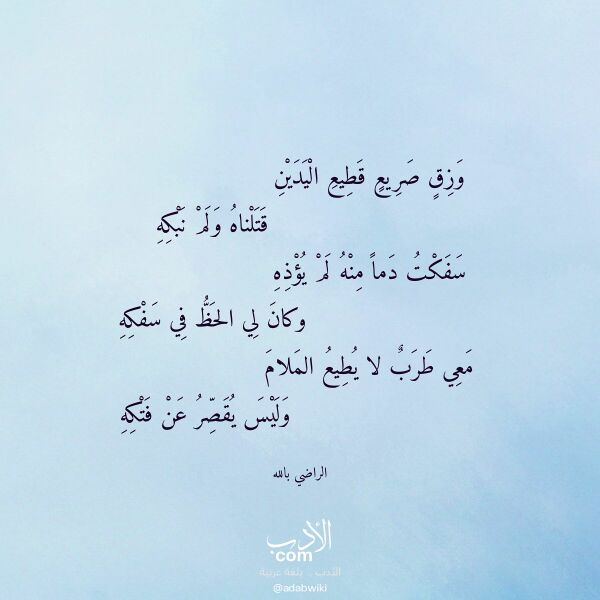 وَزِقٍ صَرِيعٍ قَطِيعِ الْيَدَيْنِ
قَتَلْناهُ وَلَمْ نَبْكِهِ
سَفَكْتُ دَماً مِنْهُ لَمْ يُؤْذِهِ
وكانَ لِي الحَظُّ فِي سَفْكِهِ
مَعِي طَرَبٌ لا يُطِيعُ المَلامَ
وَلَيْسَ يُقَصِّرُ عَنْ فَتْكِهِ
الراضي بالله
الأدب
com
الأدب .. بلغة عربية
@adabwiki